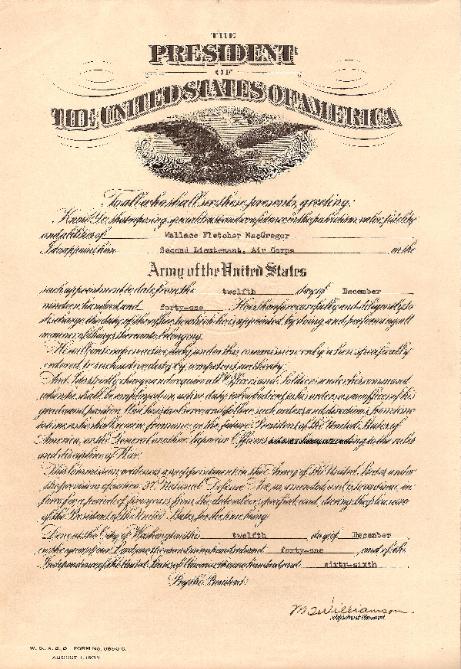 THE
PRESIDENT
OF
THE UNITED STATES OF AMERICA
To all who shall see these presents, greeting:
Know Ye, that reposing special trust and confidence in the patriotism, valor, fidelity
and abilities of Wallace Fletcher MacGregor
I do appoint him Second Lieutenant, Air Corps on the
Army of the United States
such appointment to date from the twelfth day of December
nineteen hundred and forty-one He is therefore carefully and diligently to
discharge the duty of the office to which he is appointed by doing and performing all
manner of things thereunto belonging.
He will enter upon active duty under this commission only when specifically
ordered to such active duty by competent authority.
And I do strictly charge and require all Officers and Soldiers under his command
when he shall be employed on active duty to be obedient to his orders as an officer of his
grade and position. And he is to observe and follow such orders and directions, from time
to time, as he shall receive from me, or the future President of the United States of
America, or the General or other Superior Officers according to the rules
and discipline of War.
This Commission evidences an appointment in the Army of the United States under
the provisions of section 37, National Defense Act, as amended, and is to continue in
force for a period of five years from the date above specified, and during the pleasure
of the President of the United States, for the time being.
Done at the City of Washington, this twelfth day of December
in the year of our Lord one thousand nine hundred and forty-one and of the
Independence of the United States of America the one hundred and sixty-sixth
By the President:
Adjutant General
W. D., A. G. O. FORM NO. 0650 C.
AUGUST 1, 1934